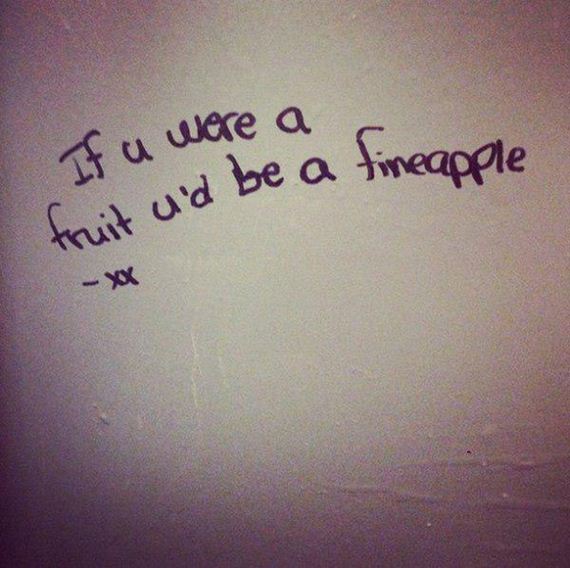 If u were a
fruit u'd be a fineapple
- xx